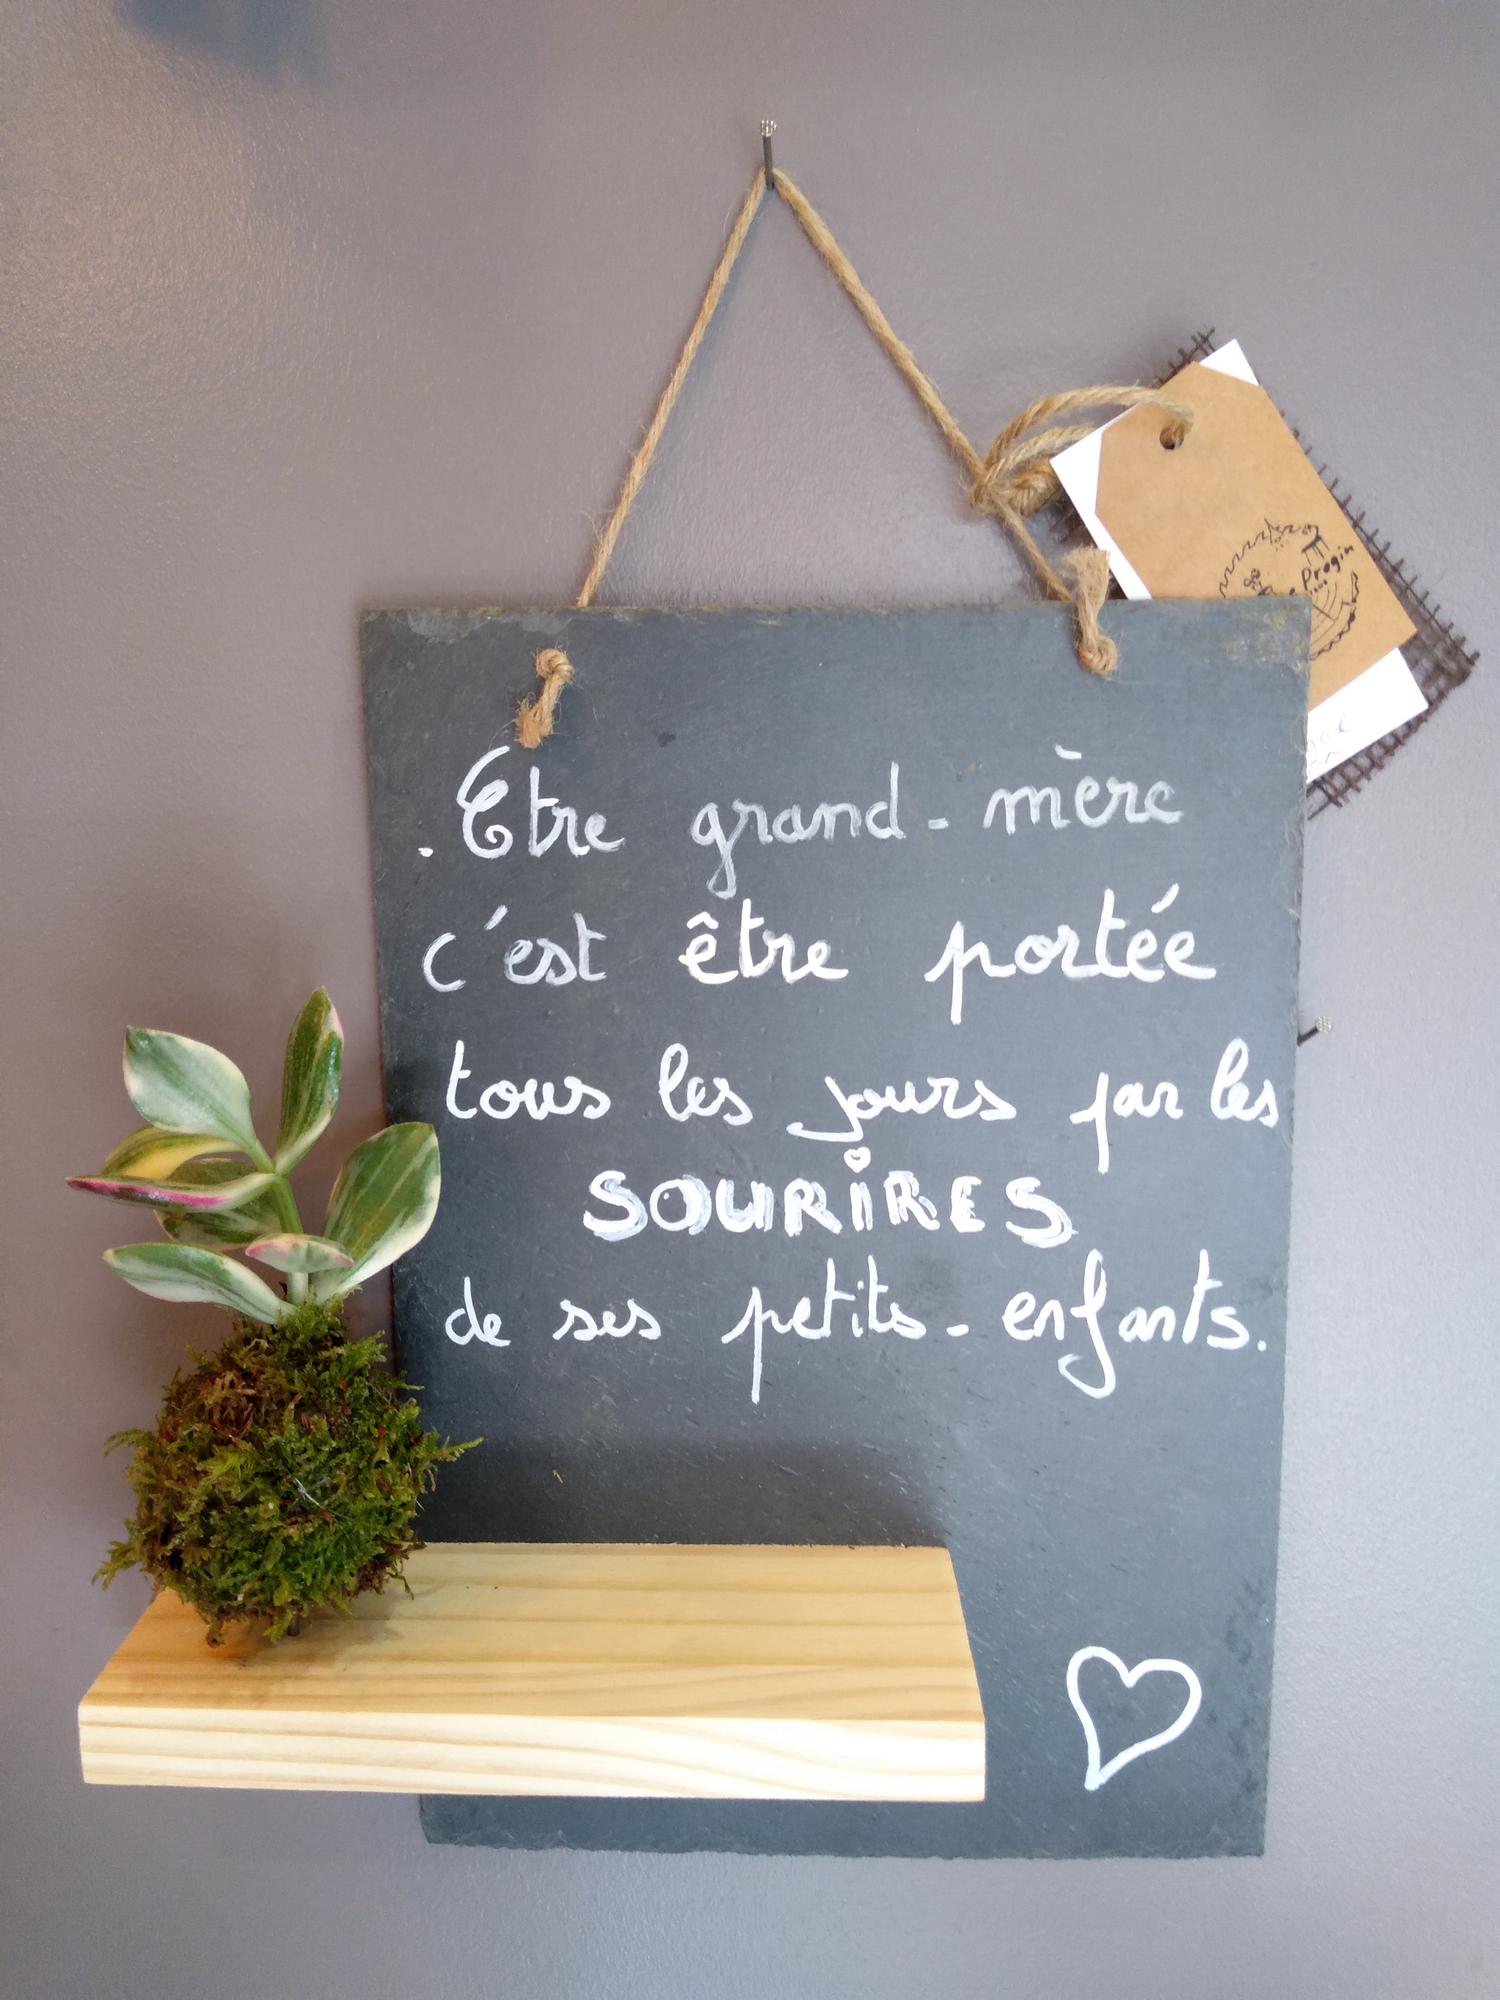 Progin
. Etre grand-mère
c'est être portée
tous les jours par les
SOURIRES
de ses petits-enfants.